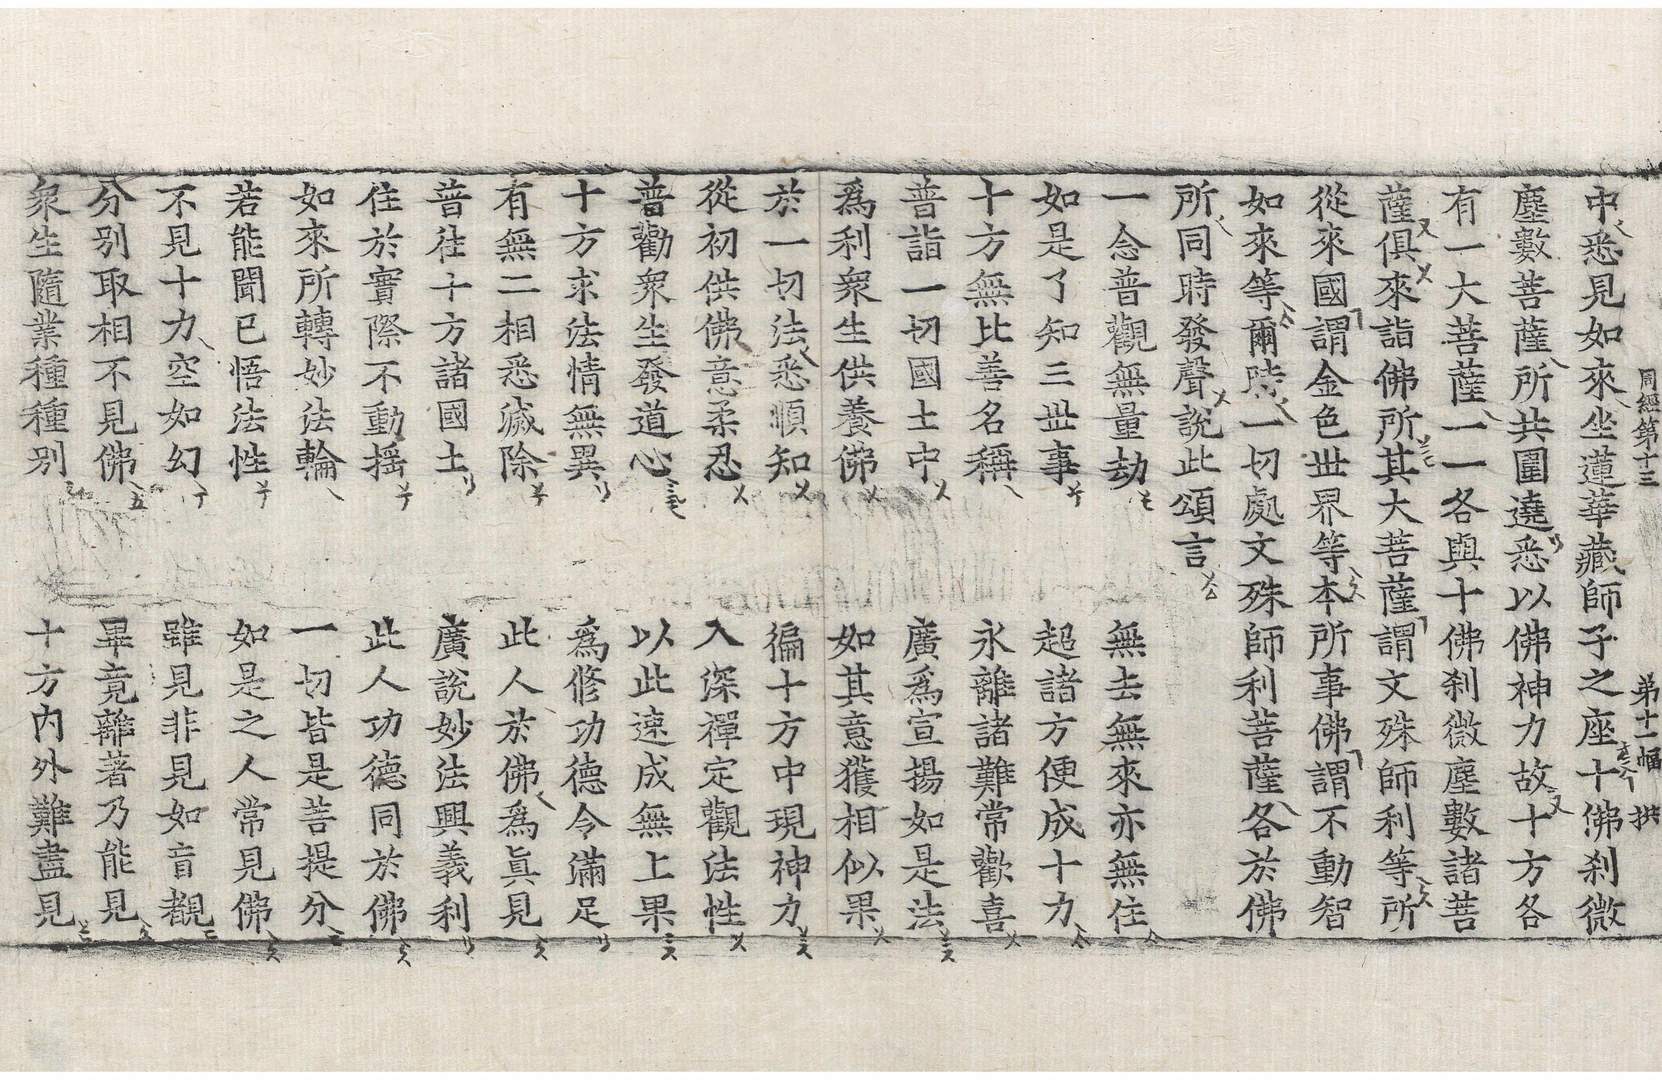 同經第十三 第十一幅 拱
中悉見如來坐蓮華藏師子之座十佛刹微
塵數菩薩所共圍遶悉以佛神力故十方各
有一大菩薩一一各與十佛刹微塵數諸菩
薩俱來詣佛所其大菩薩謂文殊師利等所
從來國謂金色世界等本所事佛謂不動智
如來等爾時一切處文殊師利菩薩各於佛
所同時發聲說此頌言
一念普觀無量劫 無去無來亦無住
如是了知三世事 超諸方便成十力
十方無比善名稱 永離諸難常歡喜
普詣一切國土中 廣爲宣揚如是法
爲利衆生供養佛 如其意獲相似果
於一切法悉順知 徧十方中現神力
從初供佛意柔忍 入深禪定觀法性
普勸衆生發道心 以此速成無上果
十方求法情無異 爲修功德令滿足
有無二相悉滅除 此人於佛爲眞見
普往十方諸國土 廣說妙法興義利
住於實際不動搖 此人功德同於佛
如來所轉妙法輪 一切皆是菩提分
若能聞已悟法性 如是之人常見佛
不見十力空如幻 雖見非見如盲覩
分別取相不見佛 畢竟離著乃能見
衆生隨業種種別 十方內外難盡見